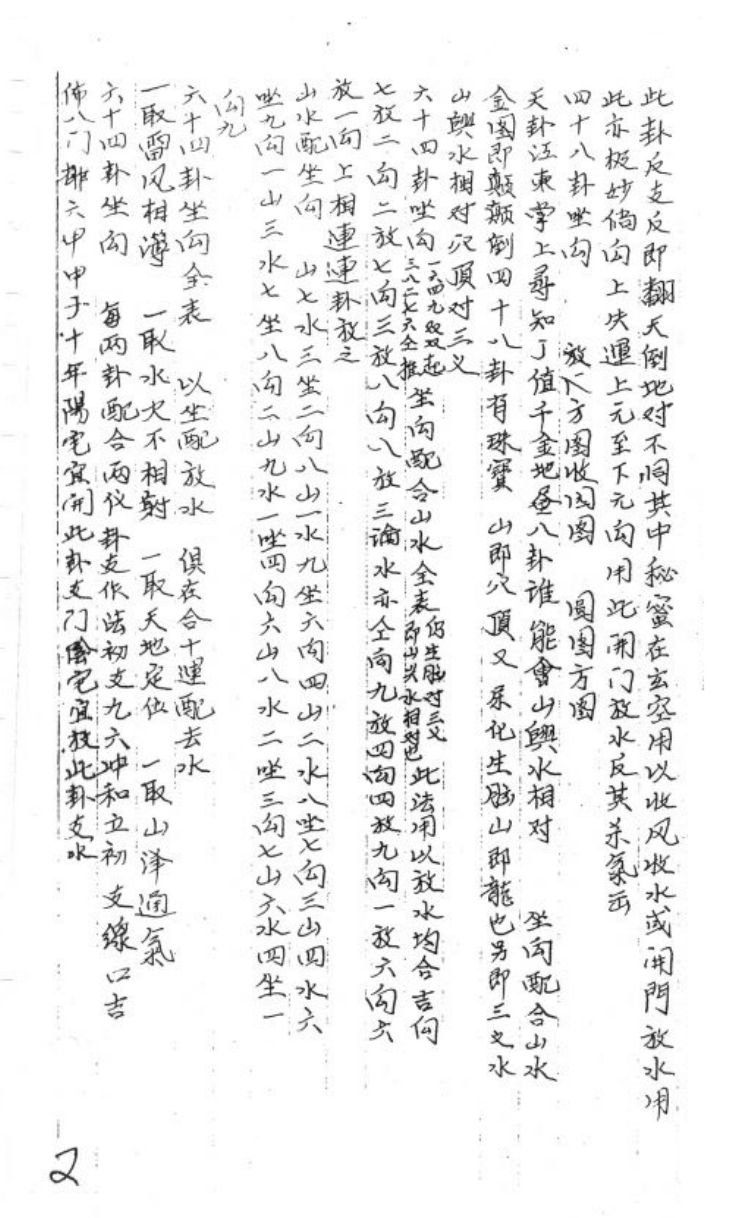 此卦反支反即翻天倒地对不同其中秘密在玄空用以收风收水或開門放水用
此亦极妙倘向上失運上元至下元向用此開门放水反其杀氣云
四十八卦坐向 放八方图收园图 圓图方图
天卦江東掌上尋知了值千金地画八卦谁能會山與水相对 坐向配合山水
金图即颠颠倒四十八卦有珠寶 山即穴頂又 化生脑山即龍也另即三叉水
山與水相对穴頂对三义
六十四卦坐向 一六四九双双起 三八二七六仝推 坐向配合山水全表 仍生脑对三义 即山与水相对也 此法用以放水均合吉向
七放二向二放七向三放八向八放三論水亦仝向九放四向四放九向一放六向六
放一向上相連連卦放之
山水配坐向 山七水三坐二向八山一水九坐六向四山二水八坐七向三山四水六
坐九向一山三水七坐八向二山九水一坐四向六山八水二坐三向七山六水四坐一
向九
六十四卦坐向全表 以坐配放水 俱在合十運配去水
一取雷风相薄 一取水火不相射 一取天地定位 一取山泽通氣
六十四卦坐向 每两卦配合两仪卦支作法初支九六冲和立初 支線口吉
佈八门排六甲甲子十年陽宅宜開此卦支门陰宅宜放此卦支水
2